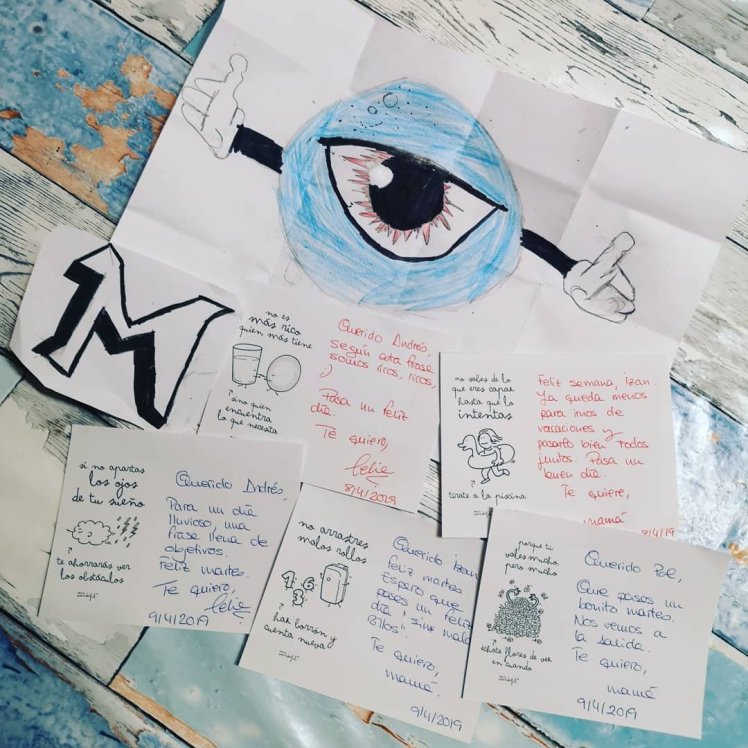 M
no es
más rico
quien más tiene
sino quien
encuentra
lo que necesita
Querido Andrés,
según esta frase
somos ricos, ricos,
;)
Pasa un feliz
día.
Te quiero,
Celia
8/4/2019
no sabes de lo
que eres capaz
hasta que lo
intentas
tírate a la piscina
Feliz semana, Izan.
Ya queda menos
para irnos de
vacaciones y
pasarlo bien todos
juntos. Pasa un
buen día.
Te quiere,
mamá
8/4/2019
si no apartas
los ojos
de tu sueño
te ahorrarás ver
los obstáculos
Querido Andrés,
Para un día
lluvioso, una
frase llena de
objetivos.
Feliz martes.
Te quiero,
Celia
9/4/2019
no arrastres
malos rollos
1 6
3
haz borrón y
cuenta nueva
Querido Izan
feliz martes
Espero que
pases un feliz
día y sin
Te quiero,
mamá.
9/4/2019
porque tú
vales mucho
pero mucho
échate flores de vez
en cuando
Querido Pol,
Que pases un
bonito martes.
Nos vemos a
la salida.
Te quiero,
mamá
9/4/2019